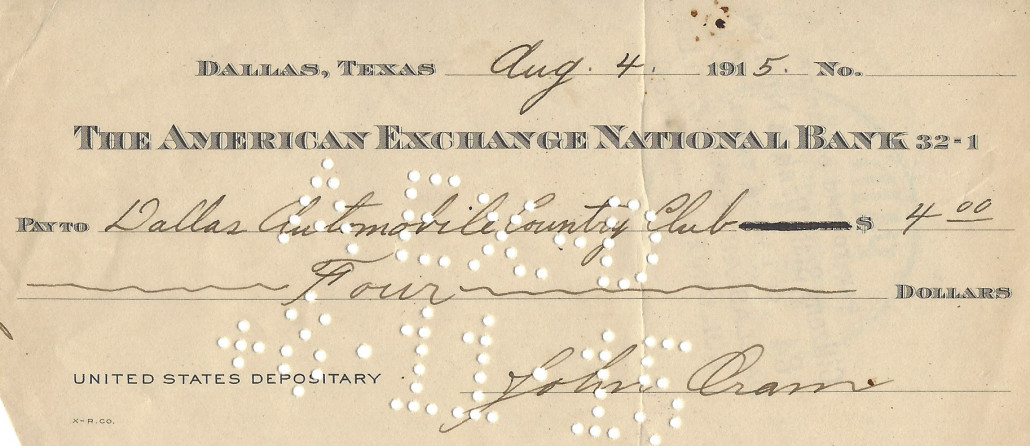 DALLAS, TEXAS Aug. 4. 1915. No.
THE AMERICAN EXCHANGE NATIONAL BANK 32-1
PAY TO Dallas Automobile Country Club $ 4 00
Four DOLLARS
UNITED STATES DEPOSITARY John Oram
X-R.CO.